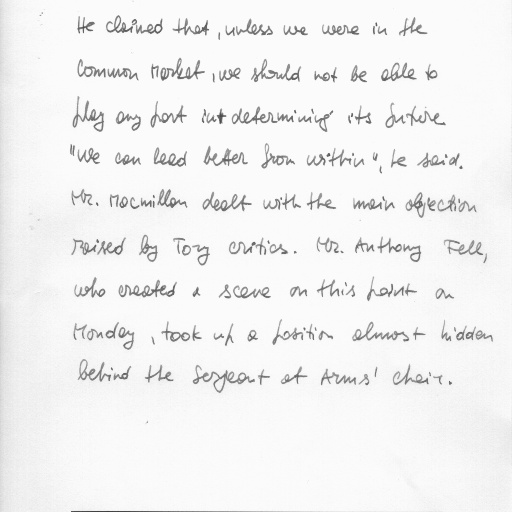 He claimed that, unless we were in the
Common Market, we should not be able to
play any part in determining its future
"We can lead better from within", he said.
Mr. Macmillan dealt with the main objection
raised by Tory critics. Mr. Anthony Fell,
who created a scene on this point on
Monday, took up a position almost hidden
behind the Sergeant at Arms' chair.